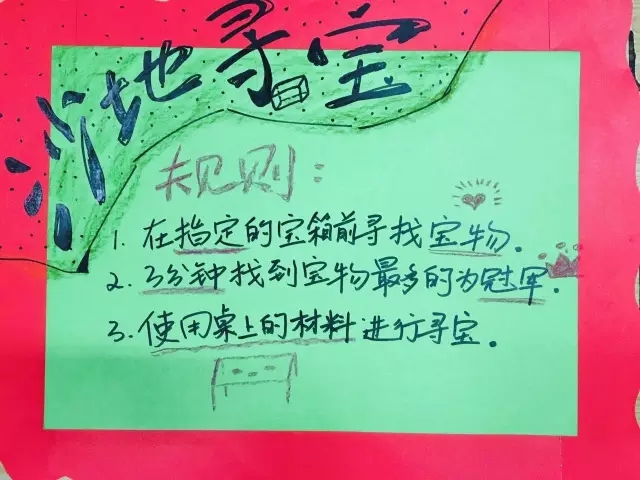 沙地寻宝
规则:
1. 在指定的宝箱前寻找宝物.
2. 3分钟找到宝物最多的为冠军.
3. 使用桌上的材料进行寻宝。